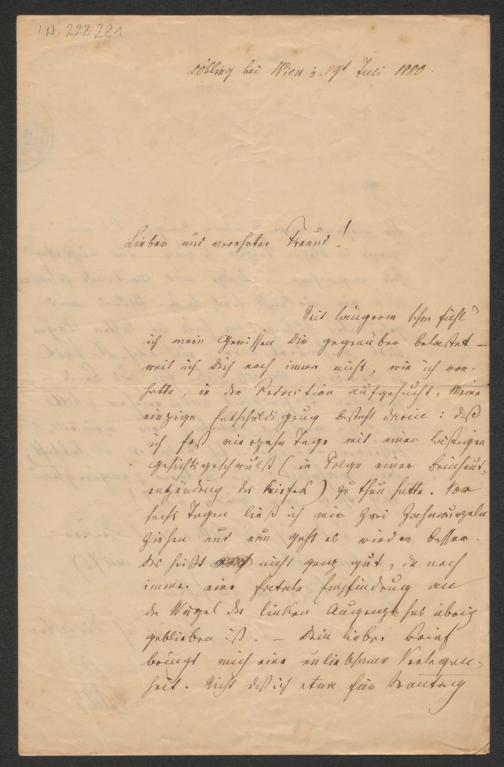 I.N. 228281
Döbling bei Wien 29t Juli 1880.
Lieber und verehrter Freund!
Seit längerem schon fühl'
ich mein Gewissen Dir gegenüber belastet –
weil ich Dich noch immer nicht, wie ich vor-
hatte, in der Redaction aufgesucht. Meine
einzige Entschuldigung besteht darin: daß
ich fast vierzehn Tage mit einer lästigen
Gesichtsgeschwulst (in Folge einer Beinhaut-
entzündung des Kiefers) zu thun hatte. Vor
sechs Tagen ließ ich mir zwei Zahnwurzeln
ziehen und nun geht es wieder besser.
Das heißt nicht ganz gut, da noch
immer eine fatale Empfindung an
der Wurzel des linken Augenzahns übrig
geblieben ist. – Dein lieber Brief
bringt mich in eine unliebsame Verlegen-
heit. Nicht daß ich etwa für